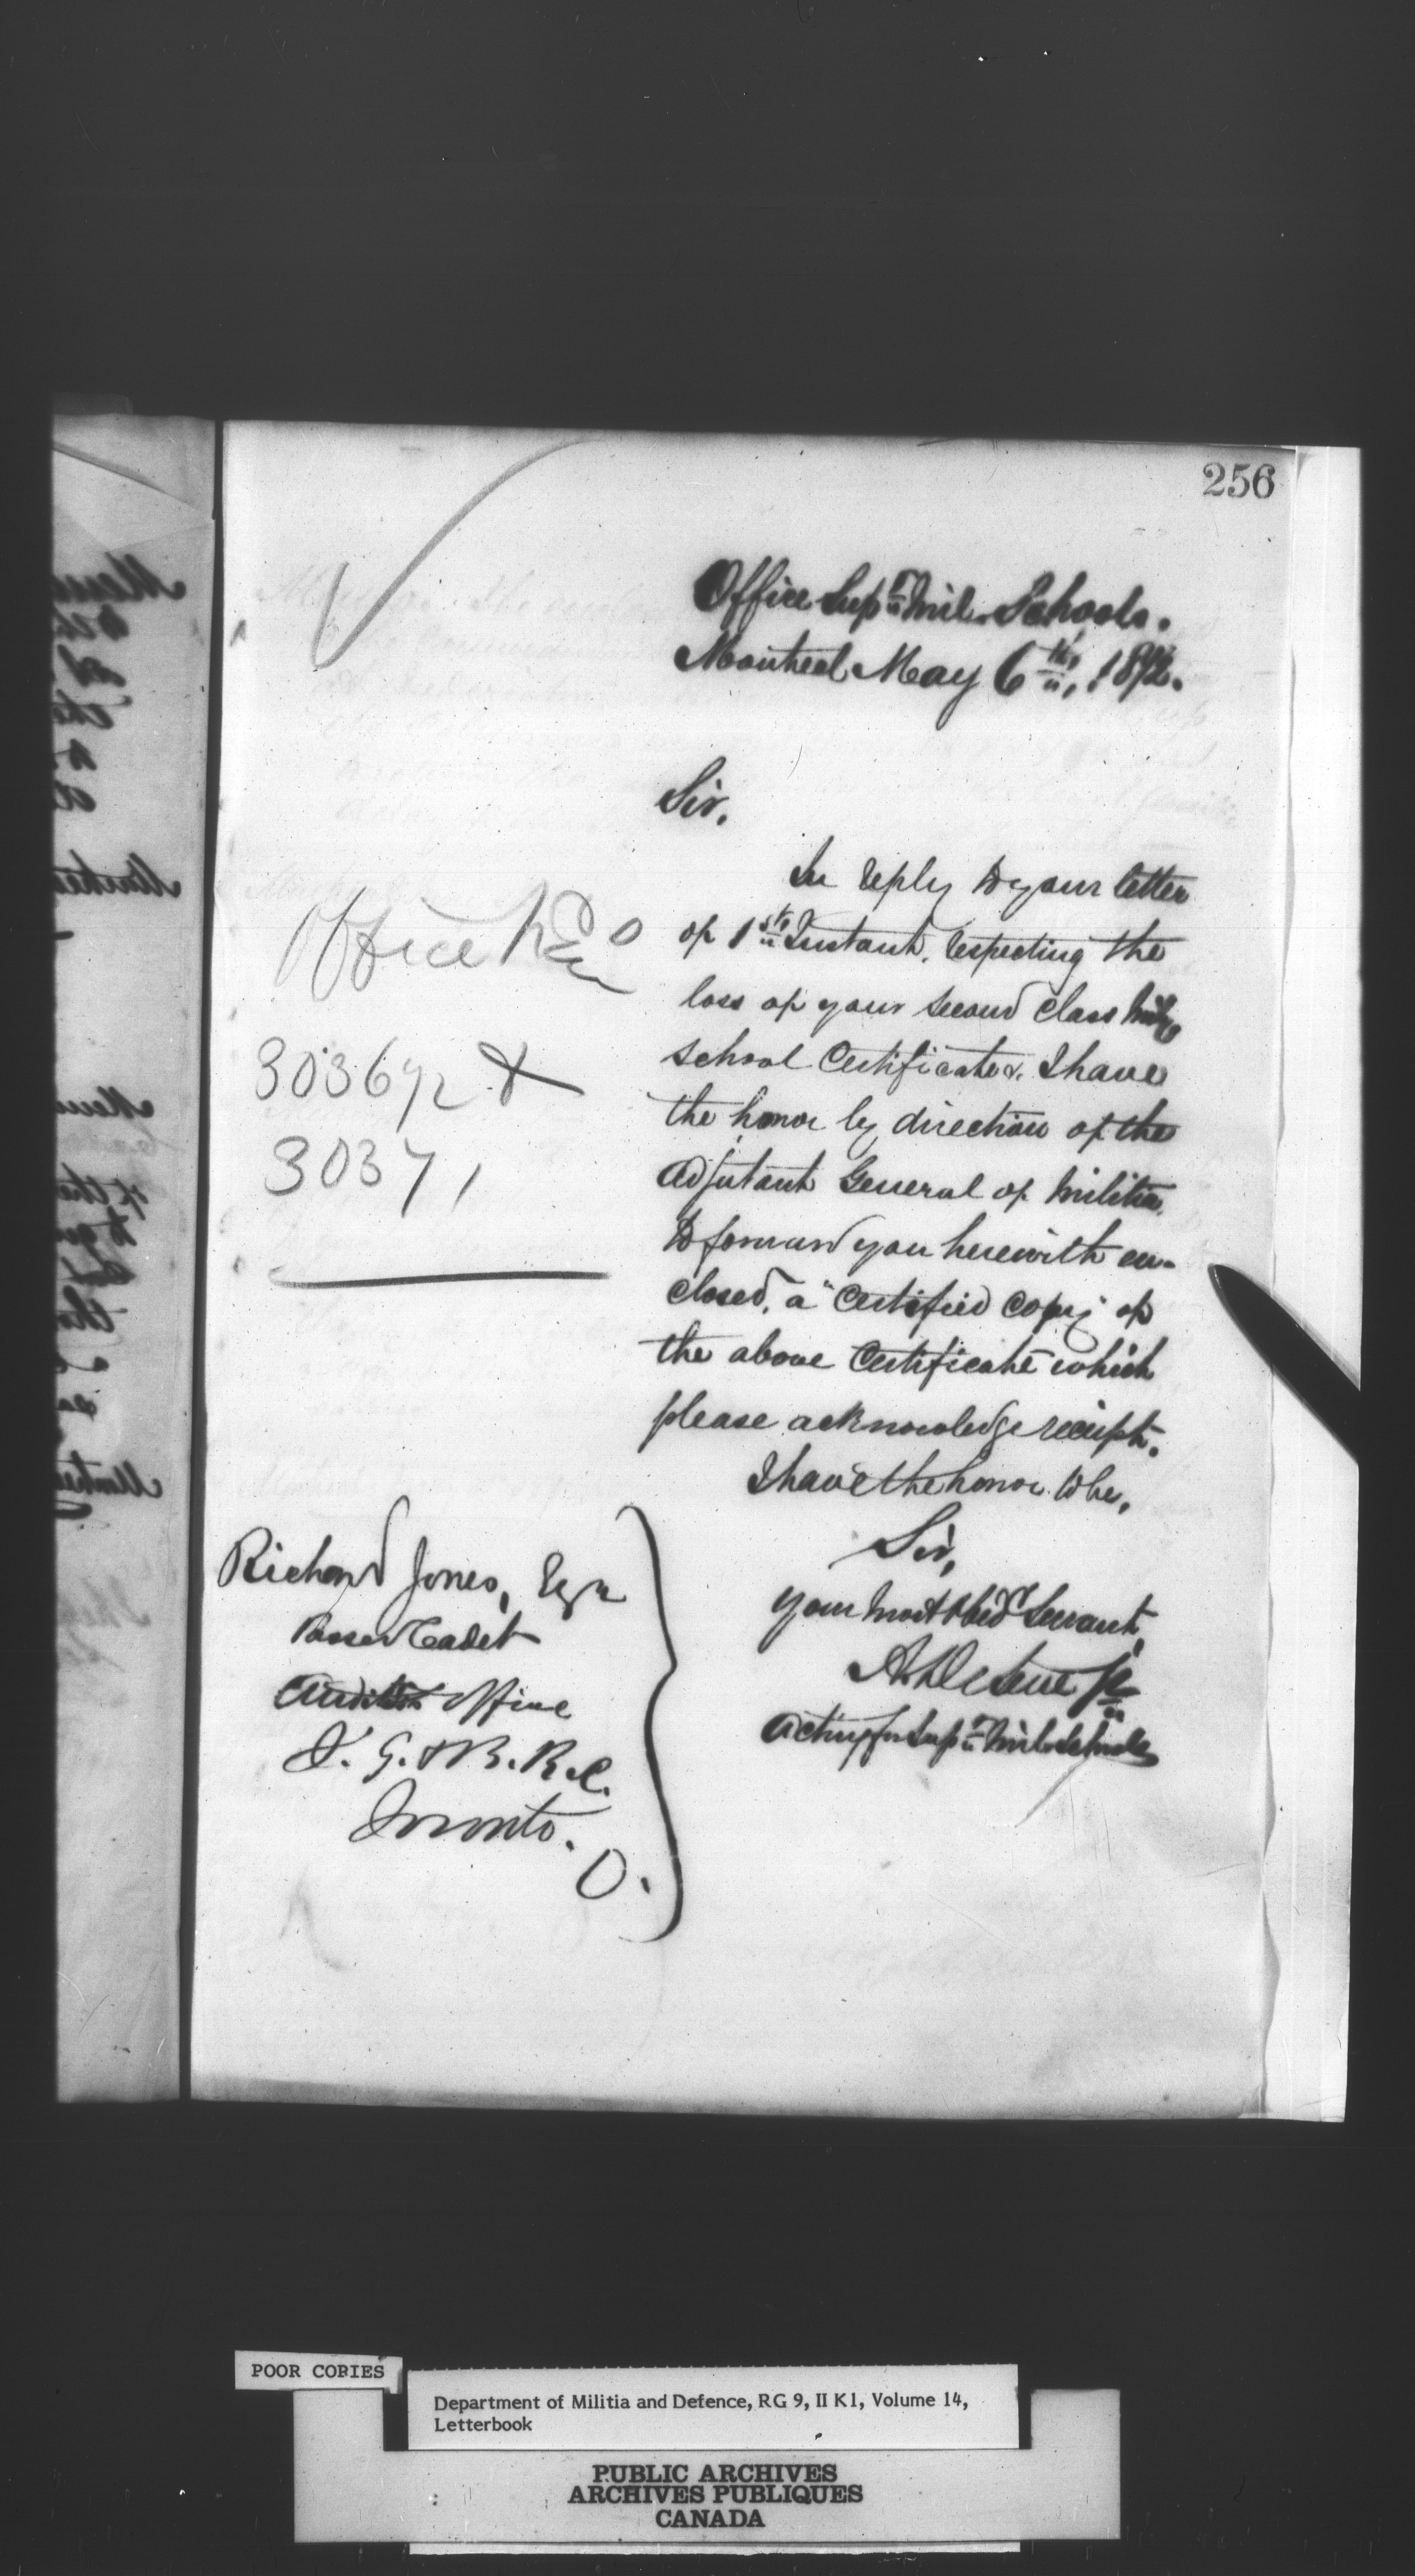 256
Office Sup.t Mil. Schools.
Montreal May 6th, 1872.
Sir,
In reply to your letter
of 1st Instant, respecting the
loss of your second class Mily
School Certificate, I have
the honor by direction of the
Adjutant General of Militia,
to forward you herewith en-
closed, a "Certified Copy" of
the above Certificate which
please acknowledge receipt.
I have the honor to be,
Sir,
your most obedt Servant,
Acting for Supt Mil. Schools
Office
30367/2 &
30371
Richard Jones, Esqr
Passed Cadet
Auditors Office
T. G. & B. R. C.
Toronto.
O.
POOR COPIES
Department of Militia and Defence, RG 9, II K1, Volume 14,
Letterbook
PUBLIC ARCHIVES
ARCHIVES PUBLIQUES
CANADA